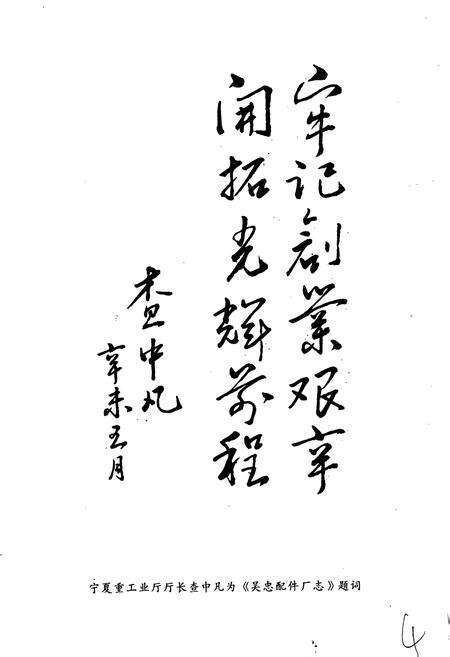 牢记創業艰辛
開拓光辉前程
查中凡
辛未五月
宁夏重工业厅厅长查中凡为《吴忠配件厂志》题词
4